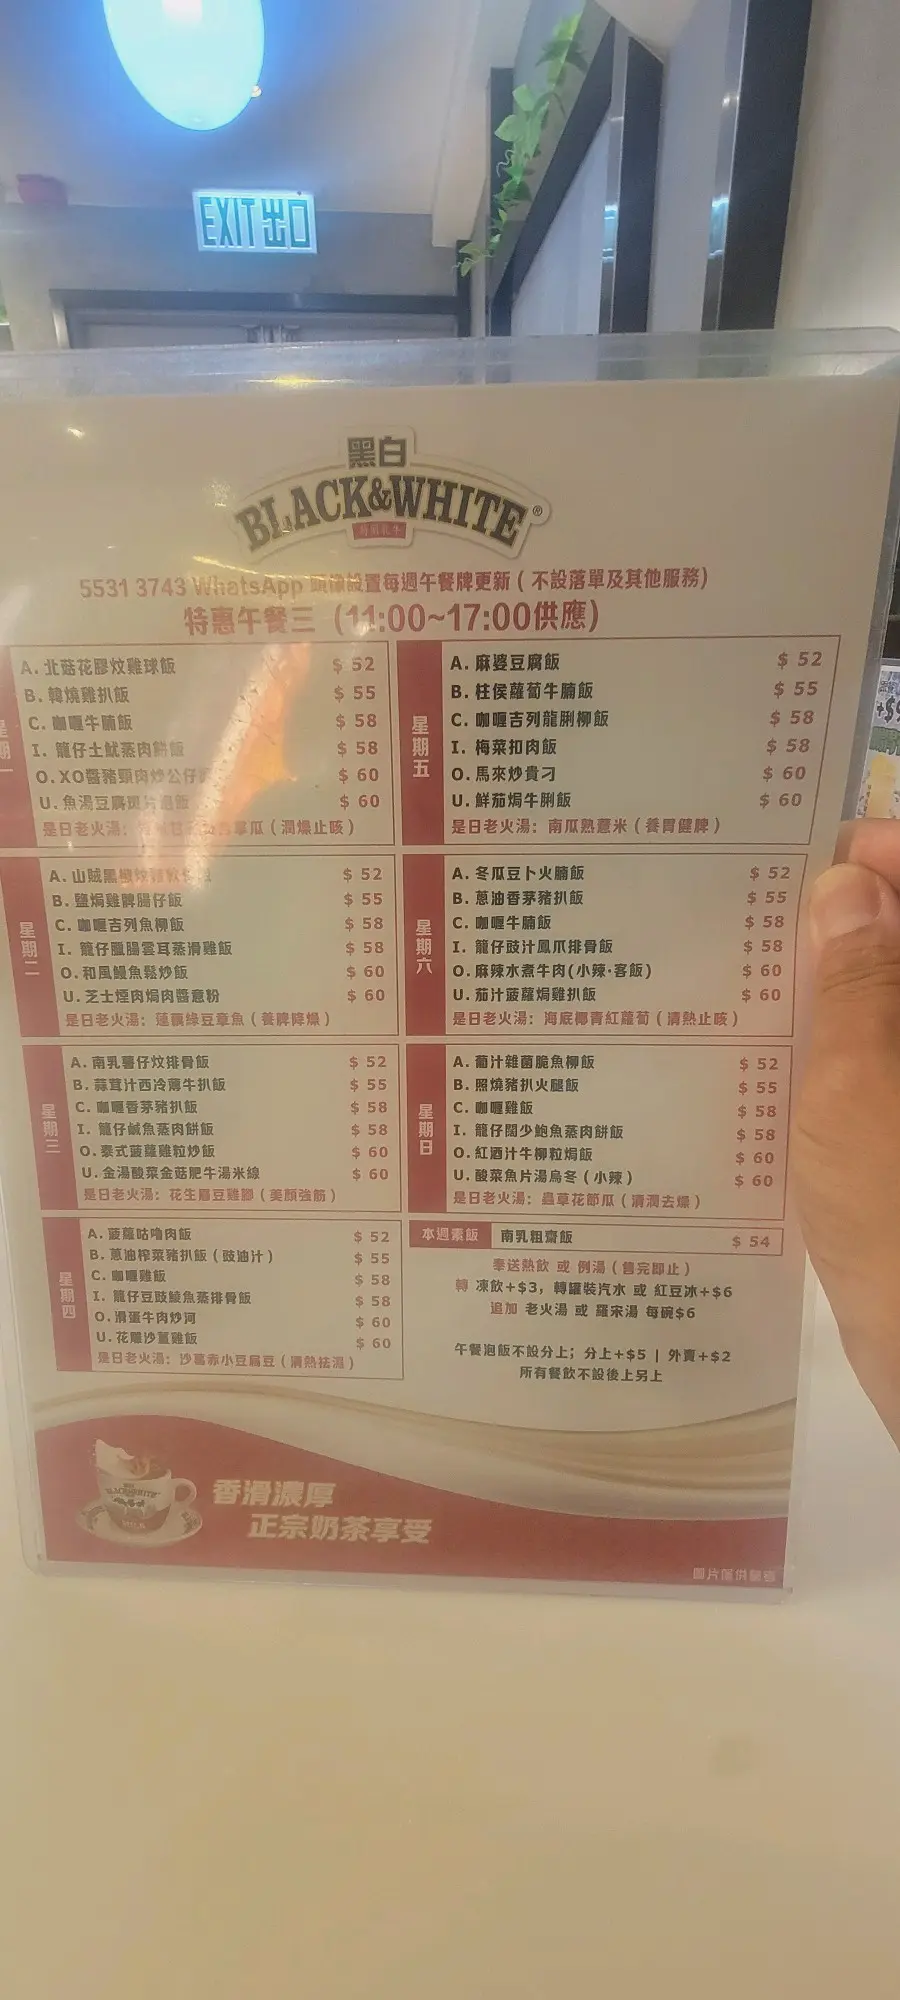 EXIT 出口
黑白
BLACK&WHITE®
5531 3743 WhatsApp 設置每週午餐牌更新 ( 不設落單及其他服務)
特惠午餐三 (11:00~17:00供應)
A. 北菇花膠炆雞球飯 $ 52
B. 韓燒雞扒飯 $ 55
C. 咖喱牛腩飯 $ 58
I. 籠仔土魷蒸肉餅飯 $ 58
O. XO醬豬頸肉炒公仔 $ 60
U. 魚湯豆腐斑片 $ 60
是日老火湯: 瓜 ( 潤燥止咳 )
星期二
A. 山賊黑 $ 52
B. 鹽焗雞髀腸仔飯 $ 55
C. 咖喱吉列魚柳飯 $ 58
I. 籠仔臘腸雲耳蒸滑雞飯 $ 58
O. 和風鰻魚鬆炒飯 $ 60
U. 芝士煙肉焗肉醬意粉 $ 60
是日老火湯: 蓮藕綠豆章魚 ( 養脾降燥 )
星期三
A. 南乳薯仔炆排骨飯 $ 52
B. 蒜茸汁西冷薄牛扒飯 $ 55
C. 咖喱香茅豬扒飯 $ 58
I. 籠仔鹹魚蒸肉餅飯 $ 58
O. 泰式菠蘿雞粒炒飯 $ 60
U. 金湯酸菜金菇肥牛湯米線 $ 60
是日老火湯: 花生眉豆雞腳 ( 美顏強筋 )
星期四
A. 菠蘿咕嚕肉飯 $ 52
B. 蔥油榨菜豬扒飯 ( 豉油汁 ) $ 55
C. 咖喱雞飯 $ 58
I. 籠仔豆豉鯪魚蒸排骨飯 $ 58
O. 滑蛋牛肉炒河 $ 60
U. 花雕沙薑雞飯 $ 60
是日老火湯: 沙葛赤小豆扁豆 ( 清熱祛濕 )
星期五
A. 麻婆豆腐飯 $ 52
B. 柱侯蘿蔔牛腩飯 $ 55
C. 咖喱吉列龍脷柳飯 $ 58
I. 梅菜扣肉飯 $ 58
O. 馬來炒貴刁 $ 60
U. 鮮茄焗牛脷飯 $ 60
是日老火湯: 南瓜熟薏米 ( 養胃健脾 )
星期六
A. 冬瓜豆卜火腩飯 $ 52
B. 蔥油香茅豬扒飯 $ 55
C. 咖喱牛腩飯 $ 58
I. 籠仔豉汁鳳爪排骨飯 $ 58
O. 麻辣水煮牛肉(小辣·客飯) $ 60
U. 茄汁菠蘿焗雞扒飯 $ 60
是日老火湯: 海底椰青紅蘿蔔 ( 清熱止咳 )
星期日
A. 葡汁雜菌脆魚柳飯 $ 52
B. 照燒豬扒火腿飯 $ 55
C. 咖喱雞飯 $ 58
I. 籠仔闊少鮑魚蒸肉餅飯 $ 58
O. 紅酒汁牛柳粒焗飯 $ 60
U. 酸菜魚片湯烏冬 ( 小辣 ) $ 60
是日老火湯: 蟲草花節瓜 ( 清潤去燥 )
本週素飯 南乳粗齋飯 $ 54
奉送熱飲 或 例湯 ( 售完即止 )
轉 凍飲+$3, 轉罐裝汽水 或 紅豆冰+$6
追加 老火湯 或 羅宋湯 每碗$6
午餐泡飯不設分上; 分上+$5 | 外賣+$2
所有餐飲不設後上另上
香滑濃厚
正宗奶茶享受